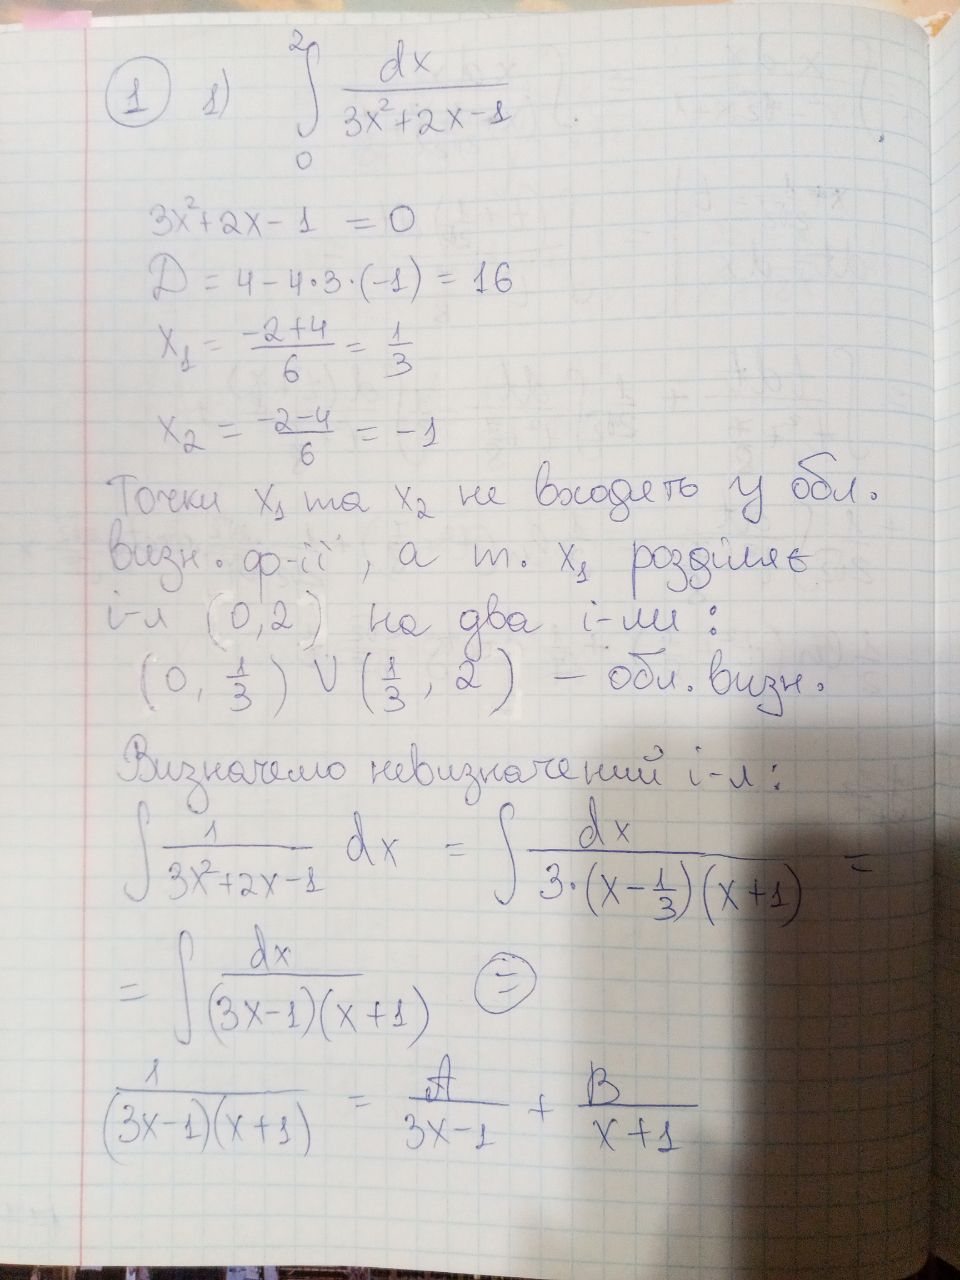 1 1) ∫₀² dx / (3x²+2x-1)
3x²+2x-1 = 0
D = 4-4·3·(-1) = 16
x₁ = (-2+4)/6 = 1/3
x₂ = (-2-4)/6 = -1
Точки x₁ та x₂ не входять у обл.
визн. ф-ії, а т. x₁ розділяє
і-л [0,2] на два і-ли:
(0, 1/3) ∪ (1/3, 2) - обл. визн.
Визначемо невизначений і-л:
∫ 1/(3x²+2x-1) dx = ∫ dx / (3·(x-1/3)(x+1)) =
= ∫ dx / ((3x-1)(x+1)) =
1/((3x-1)(x+1)) = A/(3x-1) + B/(x+1)